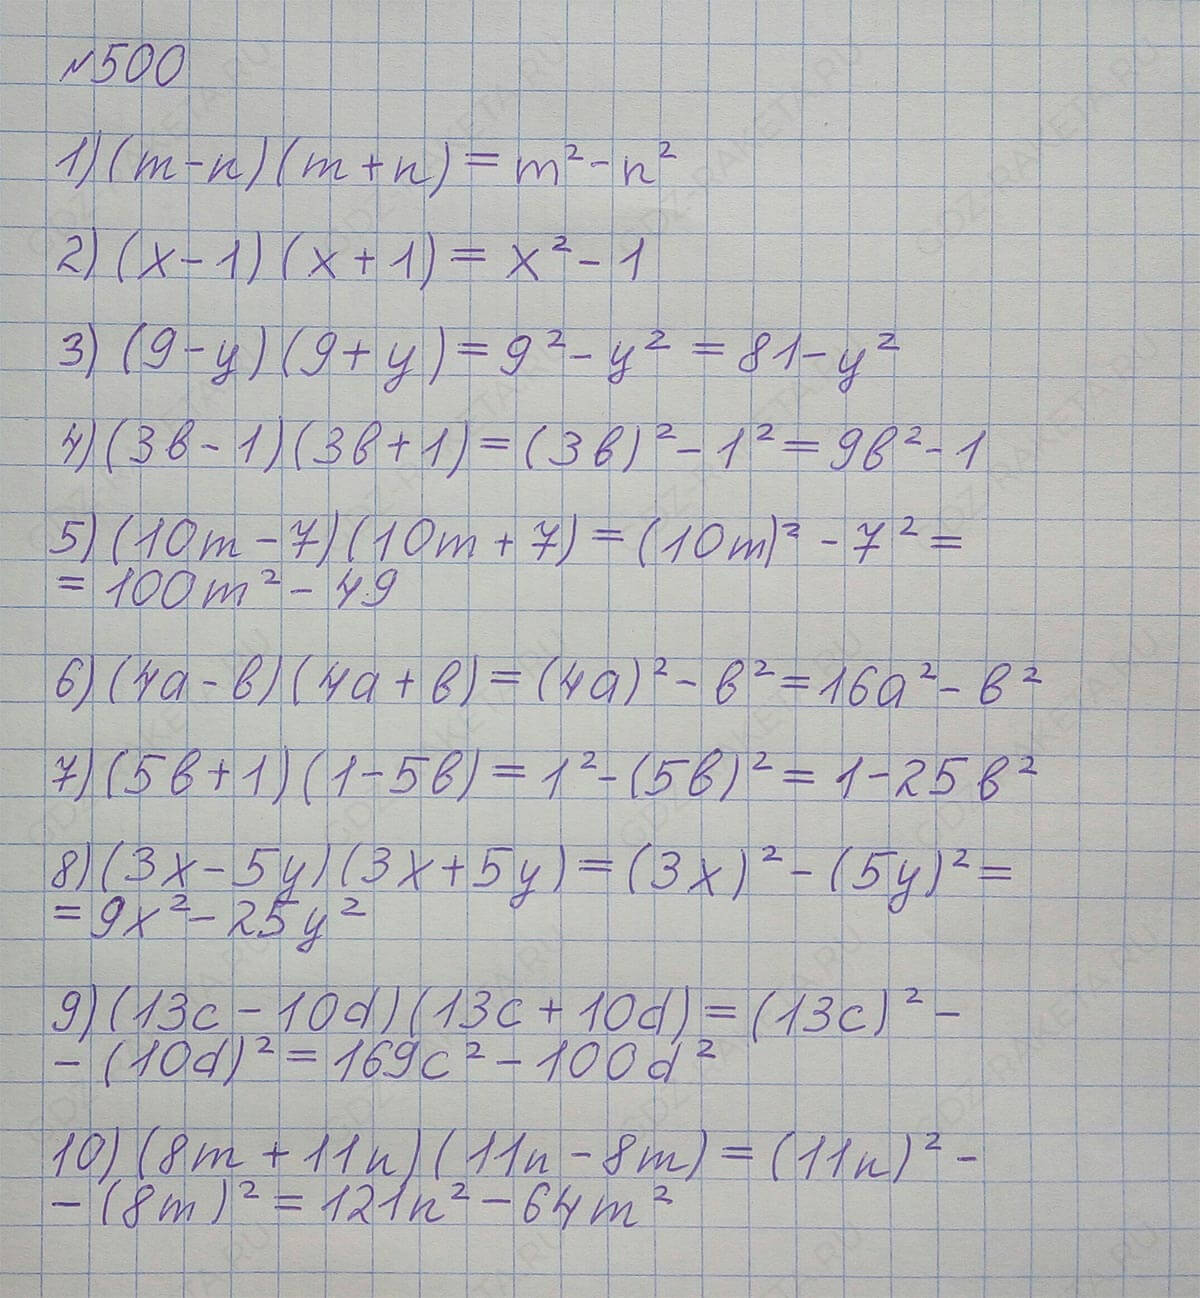 №500
1) (m-n)(m+n)=m²-n²
2) (x-1)(x+1)=x²-1
3) (9-y)(9+y)=9²-y²=81-y²
4) (3в-1)(3в+1)=(3в)²-1²=9в²-1
5) (10m-7)(10m+7)=(10m)²-7²=
=100m²-49
6) (4a-в)(4a+в)=(4a)²-в²=16a²-в²
7) (5в+1)(1-5в)=1²-(5в)²=1-25в²
8) (3x-5y)(3x+5y)=(3x)²-(5y)²=
=9x²-25y²
9) (13c-10d)(13c+10d)=(13c)²-
-(10d)²=169c²-100d²
10) (8m+11n)(11n-8m)=(11n)²-
-(8m)²=121n²-64m²
GDZ-RAKETA.RU